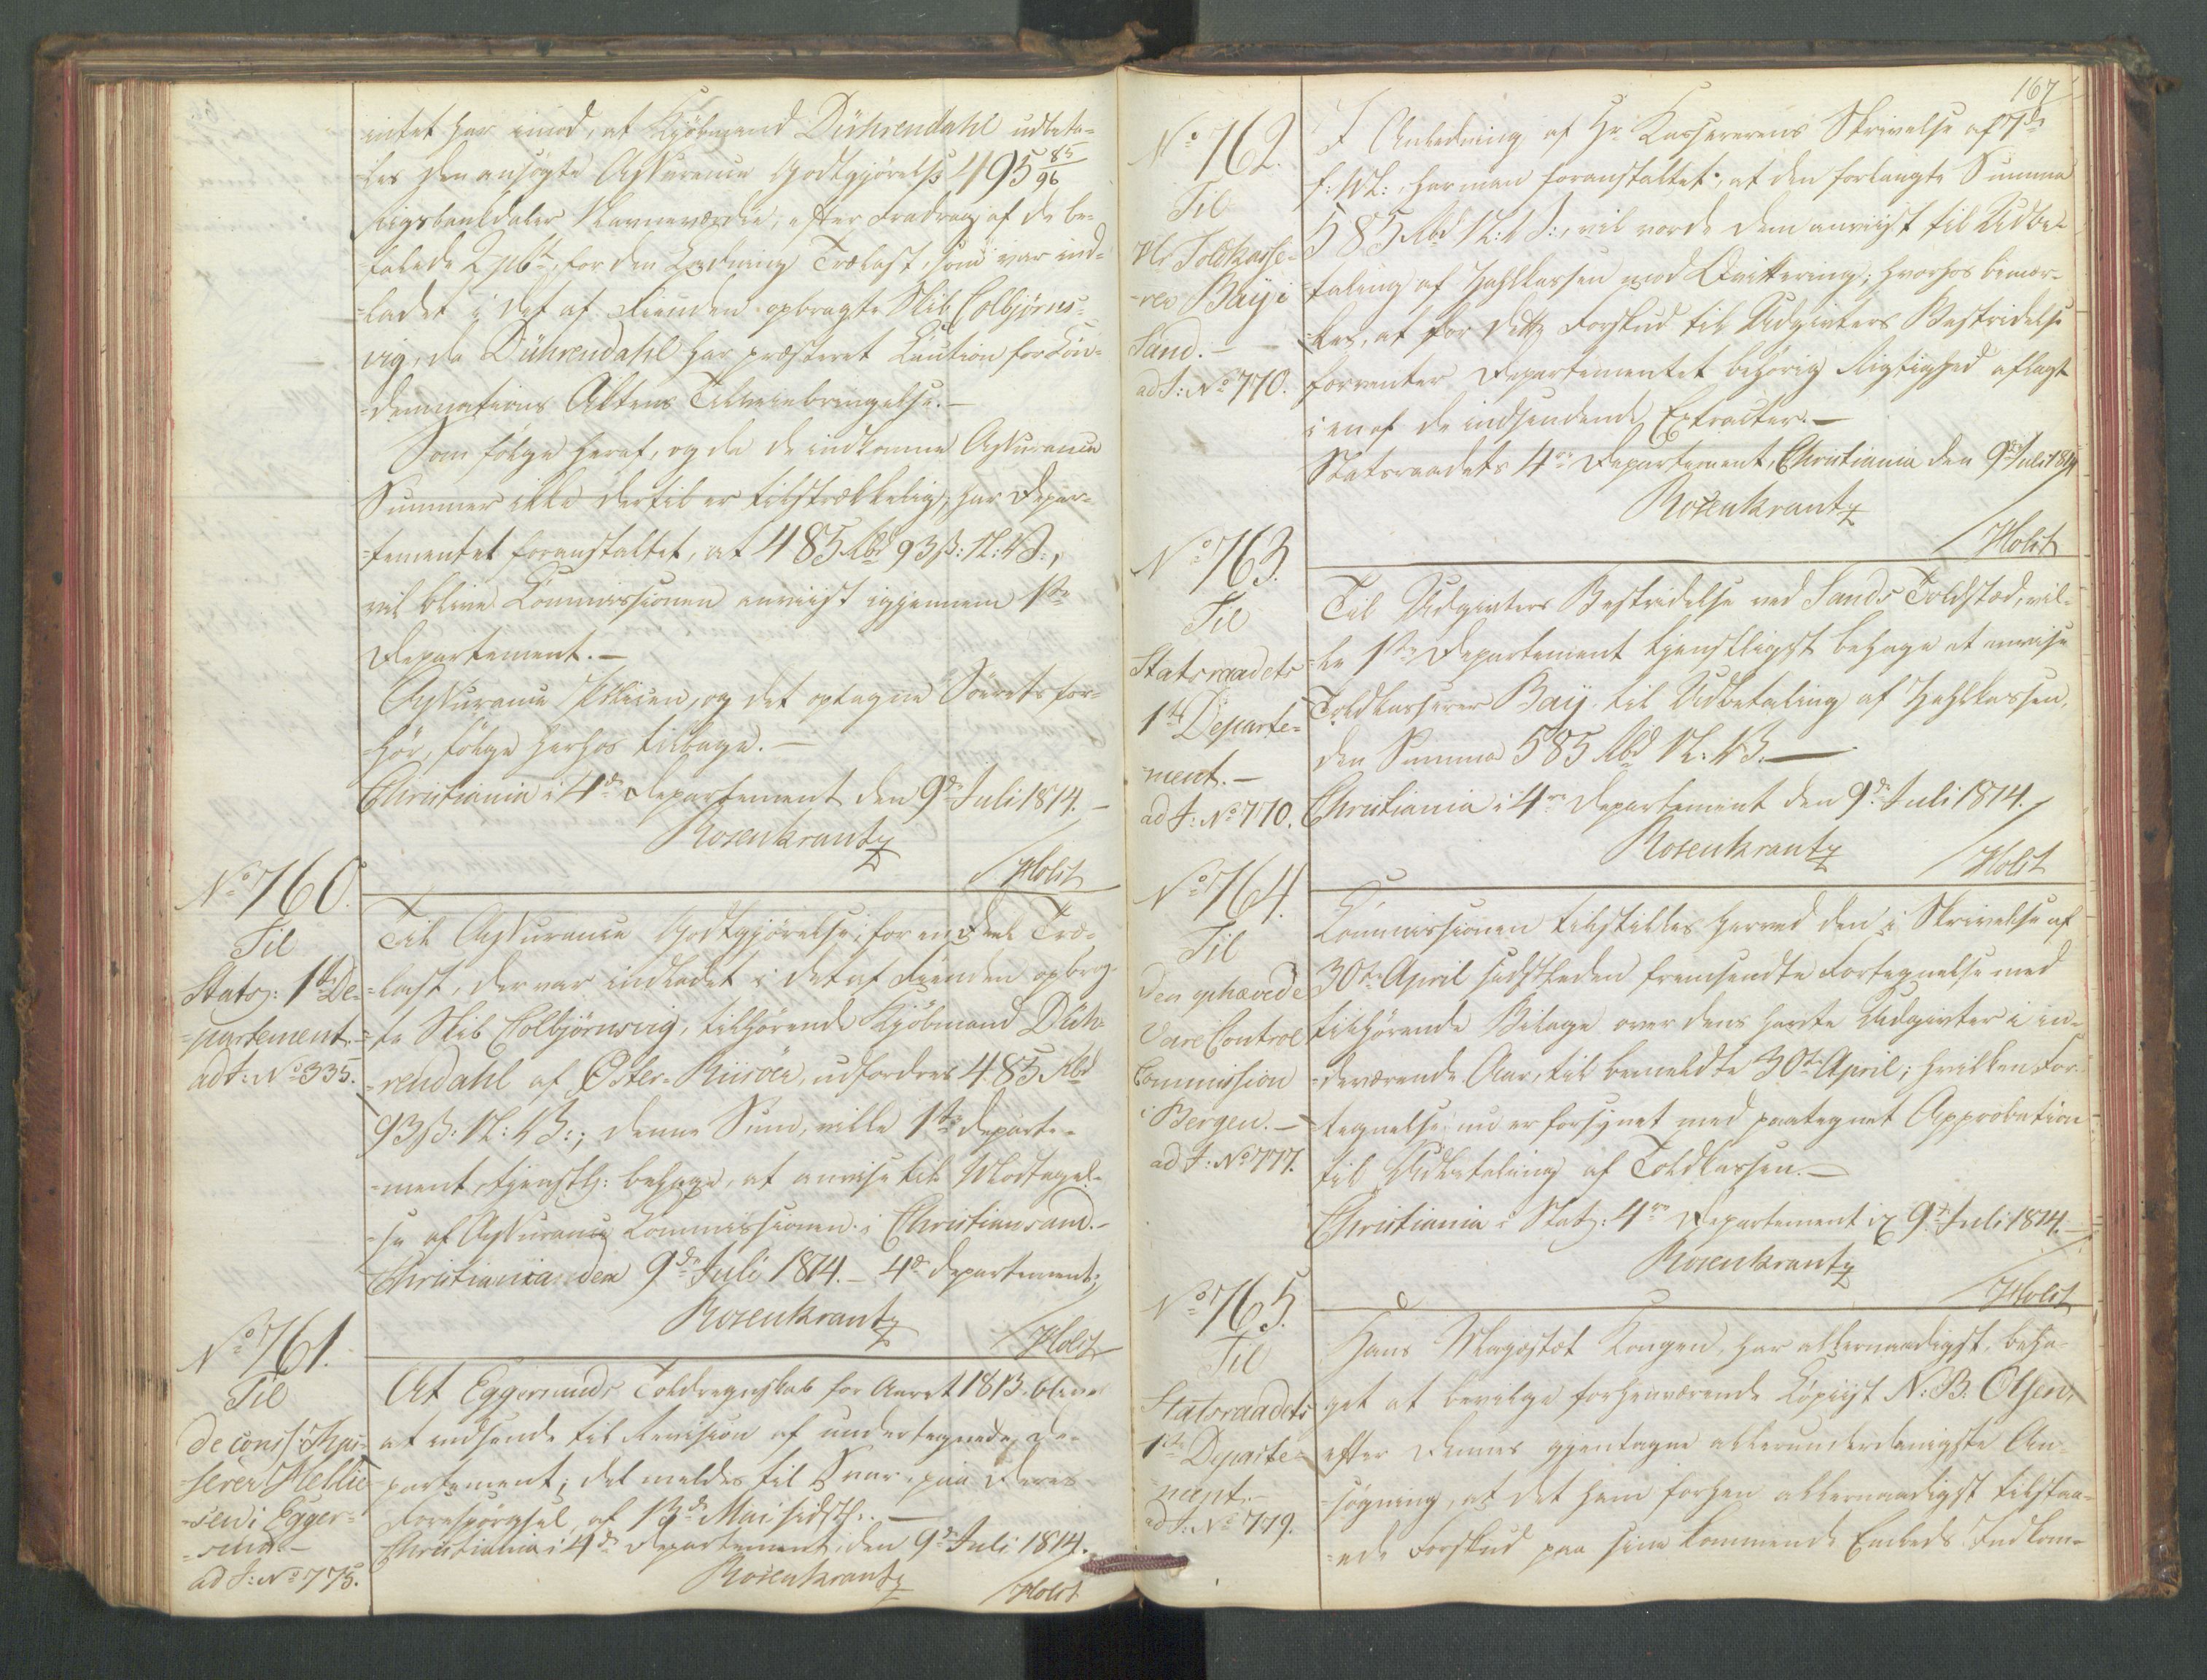 intet har imod, at Kjöbmand Dührendahl udbeta-
-les den ansögte Assurance Godtgjörelse 495 85/96
Rigsbankdaler Navneværdie, efter Fradrag af de be-
talede 2 pCt, for den Ladning Trælast, som var ind-
-ladet i det af Fienden opbragte Skib Colbjörns-
vig, da Dührendahl har præsteret Caution for Con-
-demnations Aktens Tilveiebringelse.-
Som fölge heraf, og da de indkomne Assurance
Summer ikke dertil er tilstrækkelig, har Depar-
-tementet foranstaltet, at 485 Rbd 93 ß: N: V:,
vil blive Commissionen anviist igjennem 1ste
Departement.-
Assurance Policen, og det optagne Söeretsfor-
-hör, fölge herhos tilbage.-
Christiania i 4de Departement den 9de Juli 1814.-
Rosenkrantz
/Holst
No 760.
Til
Statsr: 1ste De-
-partement.-
ad J: No 335.
Til Assurance Godtgjörelse, for en Deel Træ-
-last, der var indladet i det af Fienden opbrag-
-te Skib Colbjörnsvig, tilhörende Kjöbmand Düh-
-rendahl af Öster-Riisöer, udfordres 485 Rbd
93 ß: N: V:; denne Sum, ville 1ste Departe-
-ment, tjenstl: behage, at anvise til Modtagel-
-se af Assurance Commissionen i Christiansand.-
Christiania den 9de Juli 1814.- 4de Departement;
Rosenkrantz
/Holst
No 761.
Til
De const: Kas-
serer Mellie
-sen i Egger-
-sund-
ad J: No 775.
At Eggersunds Toldregnskab for Aaret 1813 bliver
at indsende til Revision af undertegnede De-
partement; det meldes til Svar paa Deres
Forespörgsel af 13de Mai sidstl:.-
Christiania i 4de Departement, den 9de Juli 1814.
Rosenkrantz
/Holst
167
No 762.
Til
Hr Toldkasse-
-rer Bay i
Sand.-
ad J: No 770.
I Anledning af Hr Kassererens Skrivelse af 7de
f: M:, har man foranstaltet, at den forlangte Summa
585 Rbd N: V:, vil vorde dem anviist til Udbe-
-taling af Zahlkassen mod Qvittering; hvorhos bemær-
-kes, at for dette Forskud til Udgivters Bestridelse
forventer Departementet behörig Rigtighed aflagt
i en af de indsendende Extracter.-
Statsraadets 4de Departement, Christiania den 9de Juli 1814
Rosenkrantz
/Holst
No 763.
Til
Statsraadets
1ste Departe-
-ment.-
ad J: No 770.
Til Udgivters Bestridelse ved Sands Toldsted, vil-
-le 1ste Departement tjenstligst behage at anvise
Toldkasserer Bay til Udbetaling af Zahlkassen,
den Summa 585 Rbd N: V:-
Christiania i 4de Departement den 9de Juli 1814.
Rosenkrantz
/Holst
No 764.
Til
Den ophævede
Vare Control
Commission
i Bergen.-
ad J: No 777.
Commissionen tilstilles herved den i Skrivelse af
30te April sidstleden fremsendte Fortegnelse med
tilhörende Bilage over dens havte Udgivter i in-
-deværende Aar, til bemeldte 30te April; hvilken For-
-tegnelse nu er forsynet med paategnet Approbation
til Udbetaling af Toldkassen.-
Christiania i Statsr: 4de Departement 9de Juli 1814.-
Rosenkrantz
/Holst
No 765.
Til
Statsraadets
1ste Departe-
-ment.-
ad J: No 779.
Hans Magestæt Kongen, har allernaadigst beha-
get at bevilge forhenværende Copiist N: B: Olsen,
efter Dennes gjentagne allerunderdanigste An-
-sögning, at det ham forhen allernaadigst tilstaa-
-ede Forskud paa sine kommende Embeds Indkom-